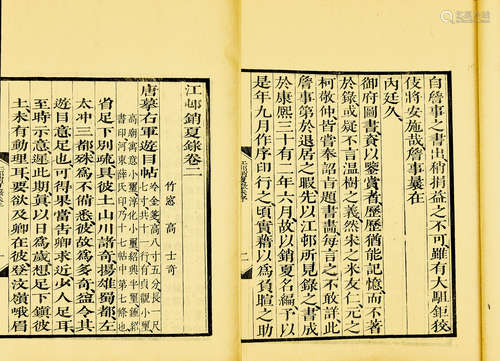 自詹事之書出稍捐益之不可雖有大駔鉅狡
伎將安施哉詹事曩在
內廷久
御府圖書資以鑒賞者歷歷猶能記憶而不著
於錄或疑不言溫樹之義然宋之米友仁元之
柯敬仲皆嘗奉詔言題書畫每言之不敢詳此
詹事第於退居之暇先以江邨所見錄之書成
於康熙三十有二年六月故以銷夏名編予以
是年九月作序印行之頃實藉以為負暄之助
江邨銷夏錄卷二
竹窻 高士奇
唐摹右軍遊目帖
冷金箋高八寸五分長一尺
七寸共十一行有貞觀小璽
高廟寓意小璽淳化小璽紹興半璽鍾紹
書印河東薛氏印乃十七帖中第七條也
省足下別疏具彼土山川諸奇揚雄蜀都左
太冲三都殊爲不備悉彼故爲多奇益令其
遊目意足也可得果當告卿求迎少人足耳
至時示意遲此期眞以日爲歲想足下鎮彼
土未有動理耳要欲及卿在彼登汶嶺峨眉